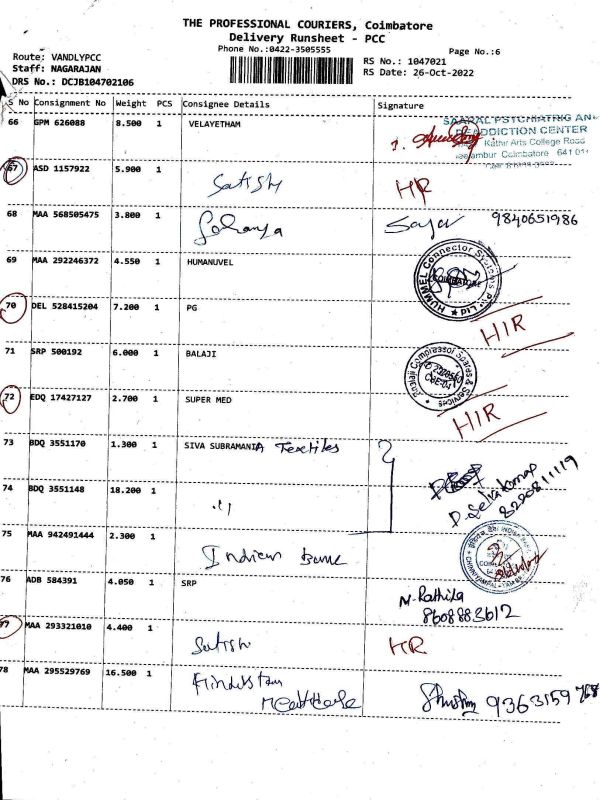 THE PROFESSIONAL COURIERS, Coimbatore
Delivery Runsheet - PCC
Phone No.:0422-3505555
Page No.:6
Route: VANDLYPCC
Staff: NAGARAJAN
DRS No.: DCJB104702106
RS No.: 1047021
RS Date: 26-Oct-2022
S No Consignment No Weight PCS Consignee Details Signature
66 GPM 626088 8.500 1 VELAYETHAM
SAARAL PSYCHIATRIC AN
DEADDICTION CENTER
Kathir Arts College Road
Coimbatore 641 0
67 ASD 1157922 5.900 1 Satish HR
68 MAA 568505475 3.800 1 9840651986
69 MAA 292246372 4.550 1 HUMANUVEL
HUMMEL Connector Systems Pvt Ltd
COIMBATORE
70 DEL 528415204 7.200 1 PG HIR
71 SRP 500192 6.000 1 BALAJI
Balaji Compressor Spares & Services
72 EDQ 17427127 2.700 1 SUPER MED HIR
73 BDQ 3551170 1.300 1 SIVA SUBRAMANIA Textiles
74 BDQ 3551148 18.200 1 ,,
D. Selvakumar
8220811119
75 MAA 942491444 2.300 1 Indian Bank
76 ADB 584391 4.050 1 SRP
M. Rathila
8608883612
77 MAA 293321010 4.400 1 Satish HR
78 MAA 295529769 16.500 1 Hindustan
9363159768